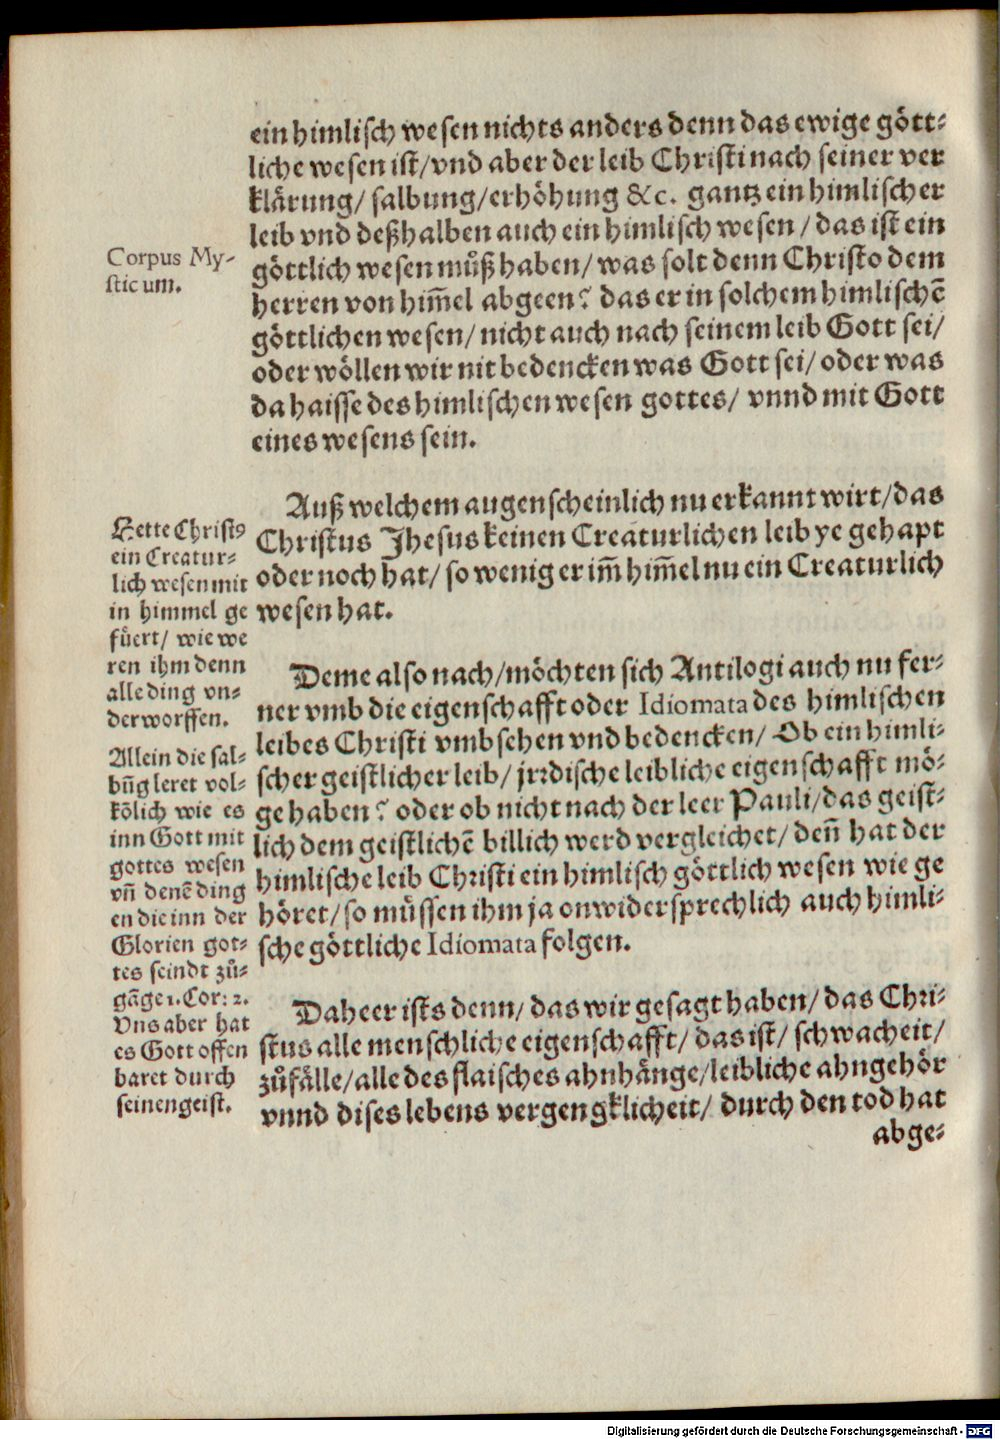 ein himlisch wesen nichts anders denn das ewige gött-
liche wesen ist/ vnd aber der leib Christi nach seiner ver
klärung/ salbung/ erhöhung &c. gantz ein himlischer
leib vnd deßhalben auch ein himlisch wesen / das ist ein
göttlich wesen můß haben/ was solt denn Christo dem
herren von him̄el abgeen? das er in solchem himlischē
göttlichen wesen/ nicht auch nach seinem leib Gott sei/
oder wöllen wir nit bedencken was Gott sei/ oder was
da haisse des himlischen wesen gottes/ vnnd mit Gott
eines wesens sein.
Corpus My-
sticum.
Auß welchem augenscheinlich nu erkannt wirt/ das
Christus Jhesus keinen Creaturlichen leib ye gehapt
oder noch hat/ so wenig er im̄ him̄el nu ein Creaturlich
wesen hat.
Hette Christꝰ
ein Creatur-
lich wesen mit
in himmel ge
fůert/ wie we
ren ihm denn
alle ding vn-
derworffen.
Deme also nach/ möchten sich Antilogi auch nu fer-
ner vmb die eigenschafft oder Idiomata des himlischen
leibes Christi vmbsehen vnd bedencken/ Ob ein himli-
scher geistlicher leib/ jrrdische leibliche eigenschafft mö-
ge haben? oder ob nicht nach der leer Pauli/ das geist-
lich dem geistlichē billich werd vergleichet/ den̄ hat der
himlische leib Christi ein himlisch göttlich wesen wie ge
höret/ so müssen ihm ja onwidersprechlich auch himli-
sche göttliche Idiomata folgen.
Allein die sal-
būg leret vol-
kölich wie es
inn Gott mit
gottes wesen
vn̄ denē ding
en die inn der
Glorien got-
tes seindt zů-
gāge 1. Cor: 2.
Vns aber hat
es Gott offen
baret durch
seinen geist.
Daheer ists denn/ das wir gesagt haben/ das Chri-
stus alle menschliche eigenschafft/ das ist/ schwacheit/
zůfälle/ alle des flaisches ahnhänge/ leibliche ahngehör
vnnd dises lebens vergengklicheit/ durch den tod hat
abge-
Digitalisierung gefördert durch die Deutsche Forschungsgemeinschaft - DFG